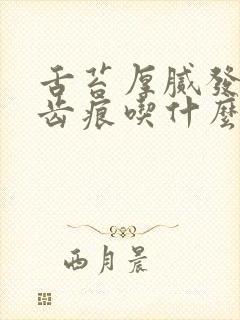 舌苔厚膩發
齒痕喫什麼
西月晨